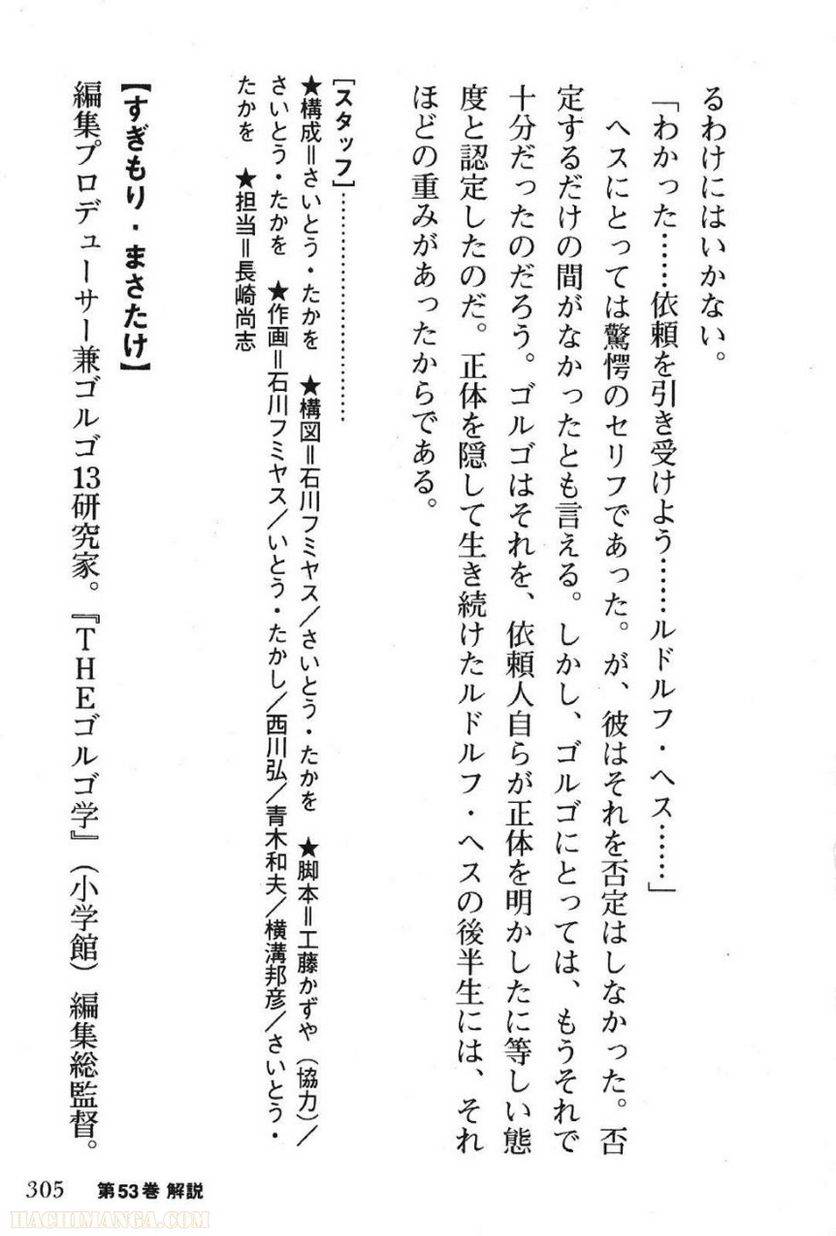 るわけにはいかない。
「わかった……依頼を引き受けよう……ルドルフ・ヘス……」
ヘスにとっては驚愕のセリフであった。が、彼はそれを否定はしなかった。否
定するだけの間がなかったとも言える。しかし、ゴルゴにとっては、もうそれで
十分だったのだろう。ゴルゴはそれを、依頼人自らが正体を明かしたに等しい態
度と認定したのだ。正体を隠して生き続けたルドルフ・ヘスの後半生には、それ
ほどの重みがあったからである。
[スタッフ]………………………………
★構成＝さいとう・たかを　★構図＝石川フミヤス/さいとう・たかを　★脚本＝工藤かずや（協力）/
さいとう・たかを　★作画＝石川フミヤス/いとう・たかし/西川弘/青木和夫/横溝邦彦/さいとう・
たかを　★担当＝長崎尚志
【すぎもり・まさたけ】
編集プロデューサー兼ゴルゴ13研究家。『THEゴルゴ学』（小学館）編集総監督。
305 第53巻 解説
HACHIMANGA.COM